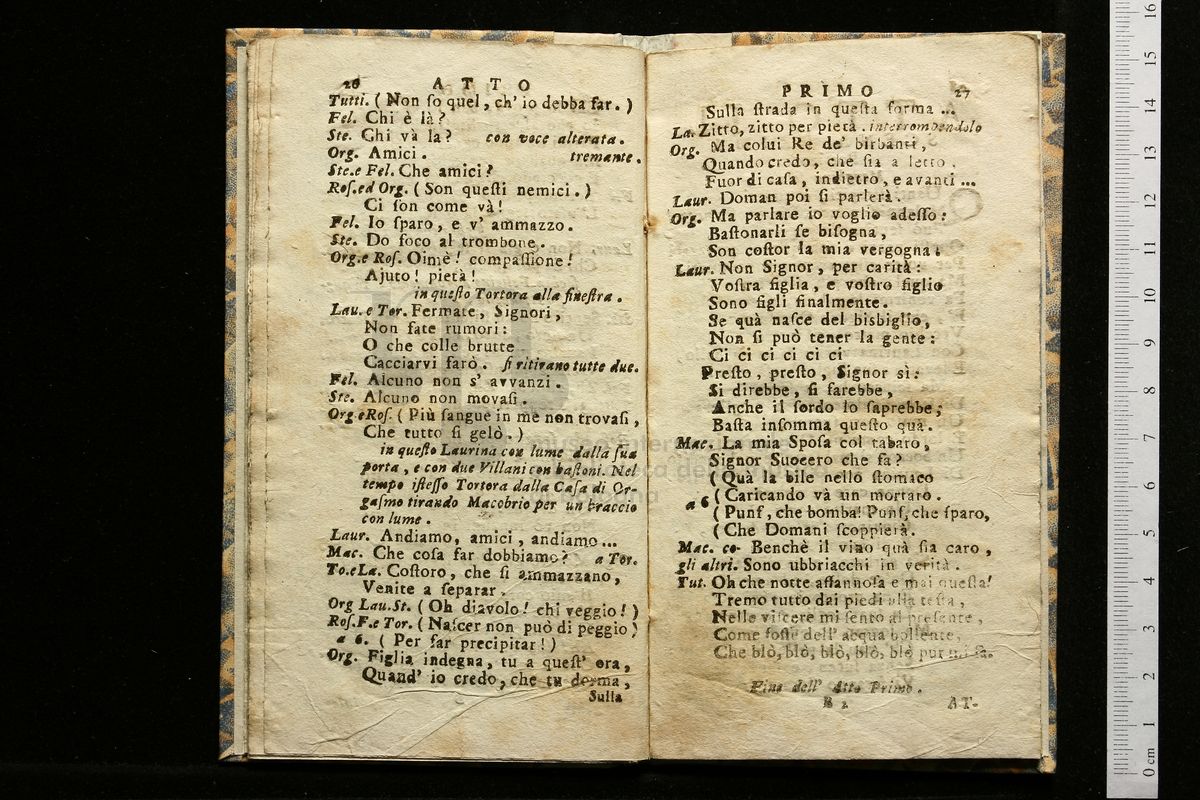 26 ATTO
Tutti. ( Non ſo quel, ch' io debba far. )
Fel. Chi è là?
Ste. Chi và la? con voce alterata.
Org. Amici. tremante.
Ste.e Fel. Che amici?
Roſ.ed Org. ( Son queſti nemici. )
Ci ſon come và!
Fel. Io ſparo, e v' ammazzo.
Ste. Do foco al trombone.
Org.e Roſ. Oimè! compaſſione!
Ajuto! pietà!
in queſto Tortora alla fineſtra.
Lau. e Tor. Fermate, Signori,
Non fate rumori:
O che colle brutte
Cacciarvi farò. ſi ritirano tutte due.
Fel. Alcuno non s' avvanzi.
Ste. Alcuno non movaſi.
Org e Roſ. ( Più ſangue in me non trovaſi,
Che tutto ſi gelò. )
in queſto Laurina con lume dalla ſua
porta, e con due Villani con baſtoni. Nel
tempo iſteſſo Tortora dalla Caſa di Or-
gaſmo tirando Macobrio per un braccio
con lume.
Laur. Andiamo, amici, andiamo...
Mac. Che coſa far dobbiamo? a Tor.
To.e La. Coſtoro, che ſi ammazzano,
Venite a ſeparar.
Org Lau.St. ( Oh diavolo! chi veggio! )
Roſ.F.e Tor. ( Naſcer non può di peggio )
a 6. ( Per far precipitar! )
Org. Figlia indegna, tu a queſt' ora,
Quand' io credo, che tu dorma,
Sulla
PRIMO 27
Sulla ſtrada in queſta forma ...
La. Zitto, zitto per pietà. interrompendolo
Org. Ma colui Re de' birbanti,
Quando credo, che ſia a letto,
Fuor di caſa, indietro, e avanti ...
Laur. Doman poi ſi parlerà.
Org. Ma parlare io voglio adeſſo:
Baſtonarli ſe biſogna,
Son coſtor la mia vergogna:
Laur. Non Signor, per carità:
Voſtra figlia, e voſtro figlio
Sono figli finalmente.
Se quà naſce del bisbiglio,
Non ſi può tener la gente:
Ci ci ci ci ci ci
Preſto, preſto, Signor sì:
Si direbbe, ſi farebbe,
Anche il ſordo lo ſaprebbe;
Baſta inſomma queſto quà.
Mac. La mia Spoſa col tabaro,
Signor Suocero che fa?
( Quà la bile nello ſtomaco
a 6 ( Caricando và un mortaro.
( Punf, che bomba! Punf, che ſparo,
( Che Domani ſcoppierà.
Mac. co- Benchè il vino quà ſia caro,
gli altri. Sono ubbriacchi in verità.
Tut. Oh che notte affannoſa e mai queſta!
Tremo tutto dai piedi alla teſta,
Nelle viſcere mi ſento al preſente,
Come foſſe dell' acqua bollente,
Che blò, blò, blò, blò, blò pur mi fa.
Fine dell' Atto Primo.
B 2 AT-
0 cm 1 2 3 4 5 6 7 8 9 10 11 12 13 14 15 16